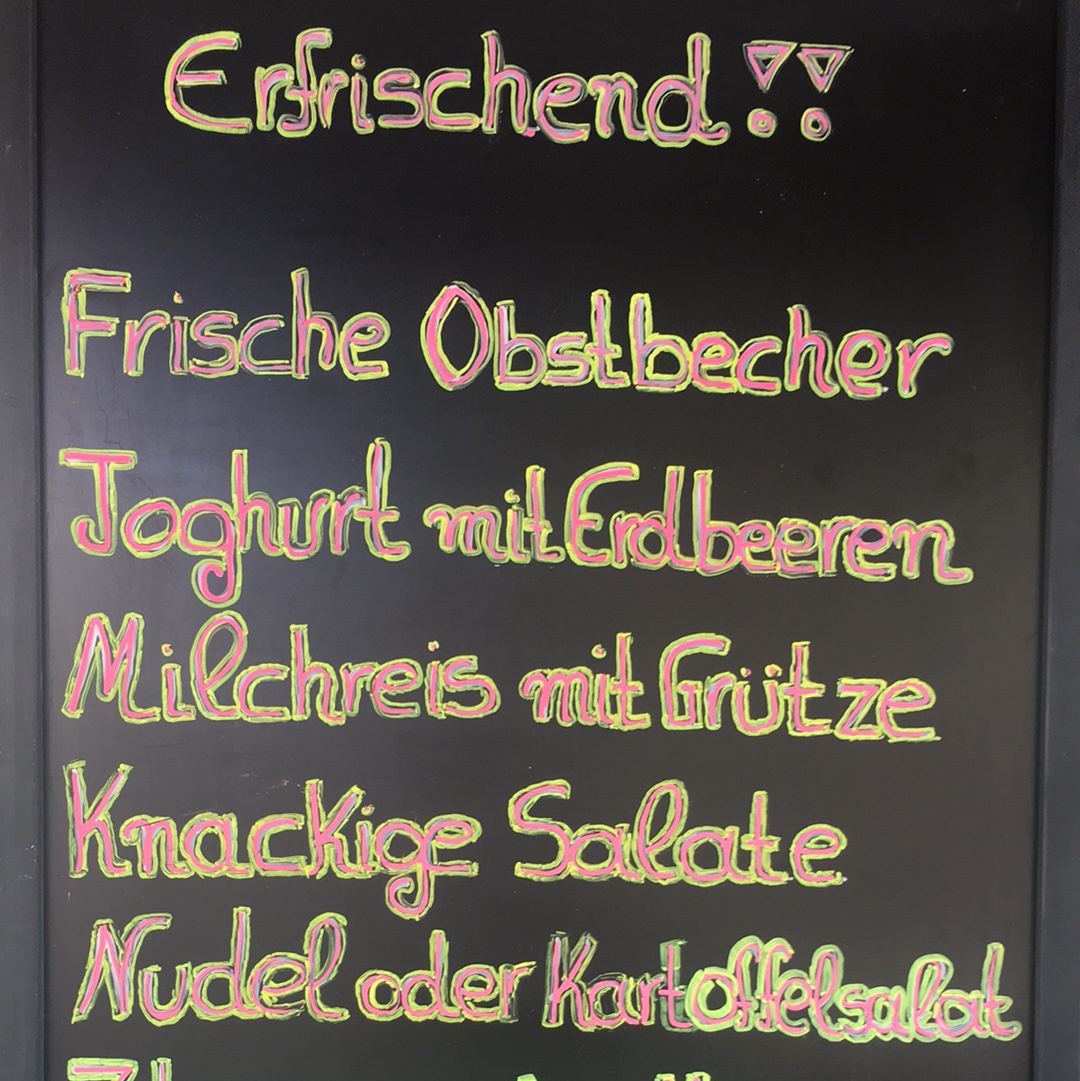 Erfrischend!!
Frische Obstbecher
Joghurt mit Erdbeeren
Milchreis mit Grütze
Knackige Salate
Nudel oder Kartoffelsalat